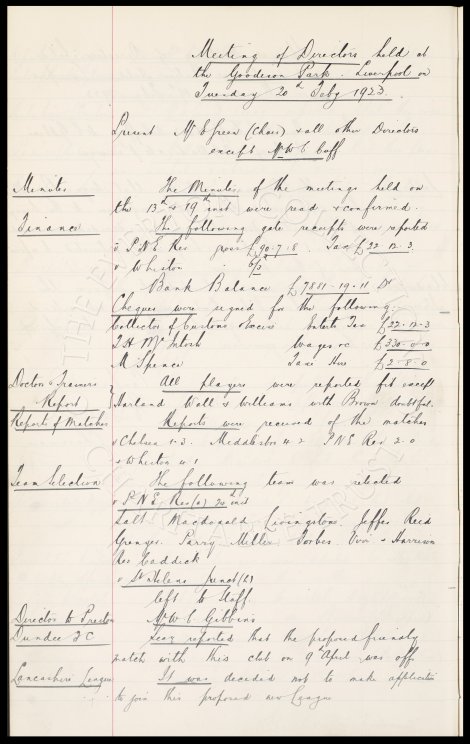 Meeting of Directors held at
the Goodison Park. Liverpool on
Tuesday 20th Feby 1923.
Present Mr E Green (Chair) & all other Directors
except Mr W C Cuff
Minutes
The Minutes of the meetings held on
the 13th & 19th inst were read & confirmed.
Finance
The following gate receipts were reported
v P.N.E. Res gross £90.7.8. Tax £22.12.3
v Whiston
Bank Balance £7881.19.11 Dr
Cheques were signed for the following
Collector of Customs & Excise Entertt Tax £22.12.3
T. H. McIntosh Wages &c £330.0.0
M Spence Taxi Hire £2.8.0
Doctor & Trainers
Report
All players were reported fit except
Harland Wall & Williams with Brown doubtful.
Reports of Matches
Reports were received of the matches
v Chelsea 1.3. Middlesbro 4.2 P.N.E. Res 2.0
v Whiston 4.1
Team Selection
The following team was selected
v P.N.E. Res (a) 24th inst
Salt Macdonald Livingstone. Jeffes Reid
Grenyer. Parry. Miller Forbes. &  Harrison
Res Caddick
v St Helens (h)
left to Staff.
Director to Preston
Mr W. C. Gibbins
Dundee F C
Secy reported that the proposed friendly
match with this club on 9th April was off
Lancashire League
It was decided not to make application
to join this proposed new League